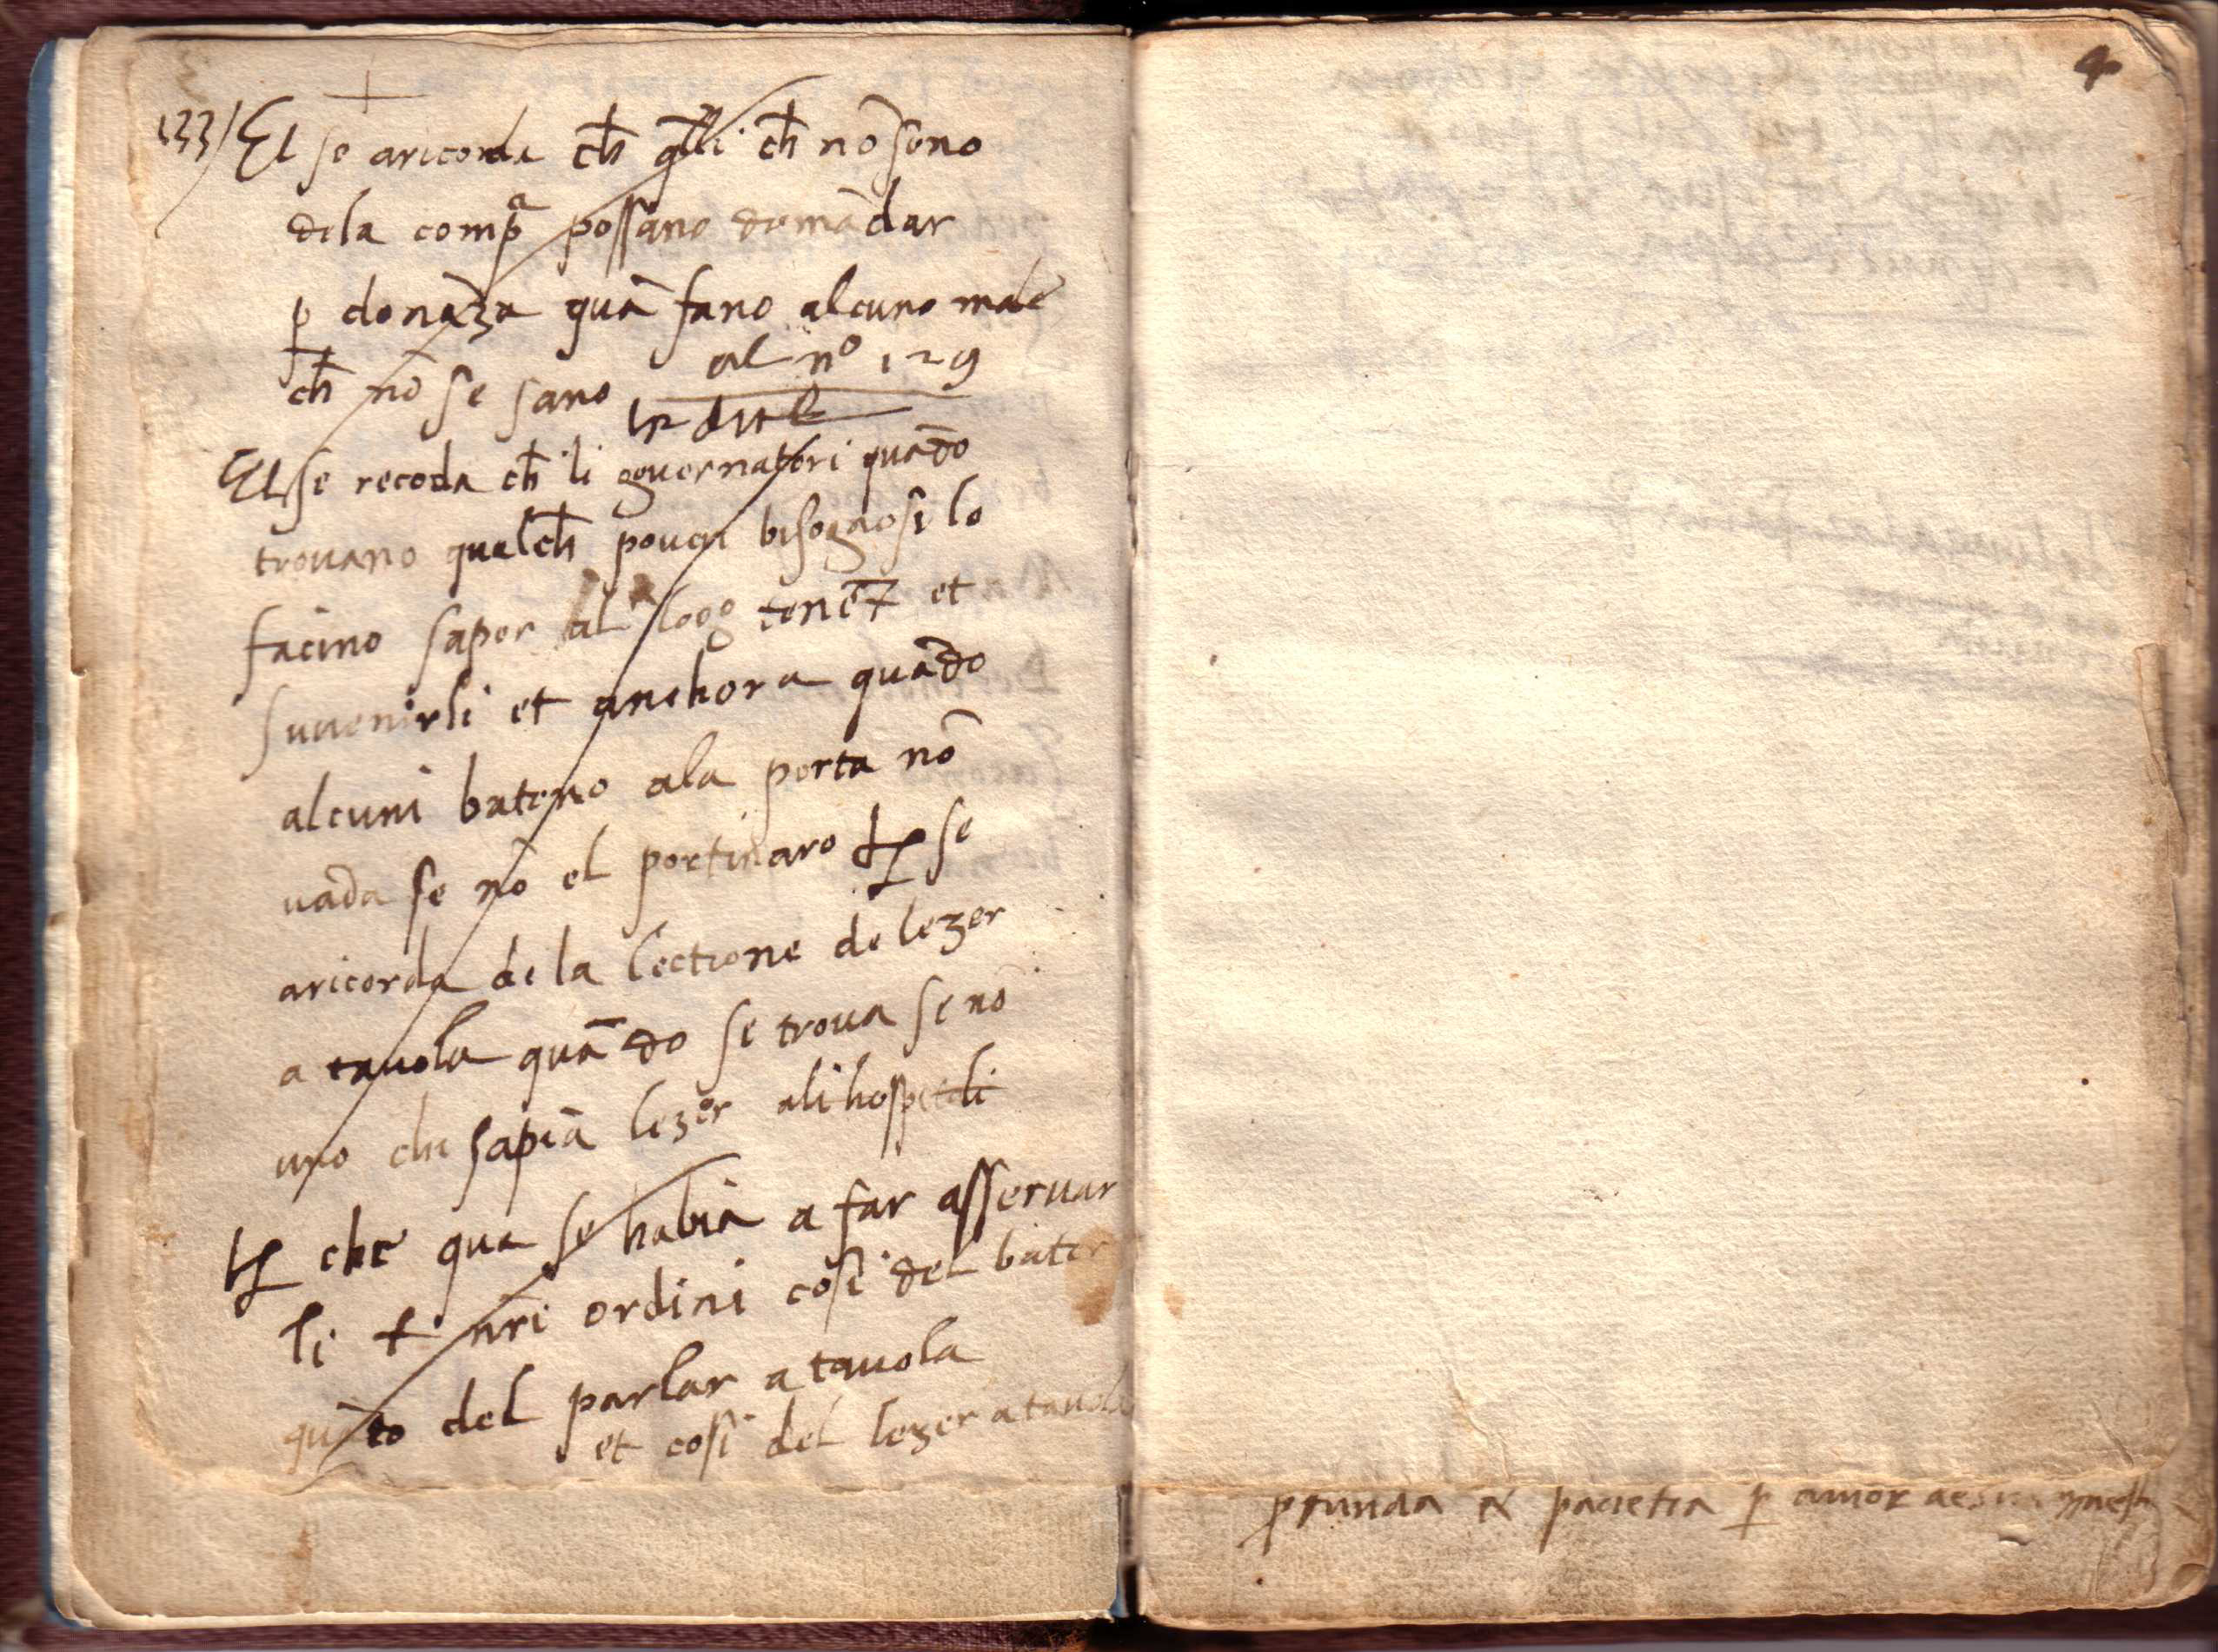 133) El se aricorda ch̄ q̄lli ch̄ nō sono
dela comp̄ᵃ possano domādar
p̱ donāza quā fano alcuno male
ch̄ nō se sano al nº 129
El se recoda ch̄ li governatori quādo
trouano qualch̄ poueri bisognosi lo
facino saper al loog tenēt et
suuenirli et anchora quādo
alcuni bateno ala porta nō
uada se nō el portinaro se
aricorda de la lectione de lezer
a tauola quādo se troua se nō
uno che sapia lezer ali hospitali
che qua se habia a far asseruar
li nr̄i ordini cosi del bater
quāto del parlar a tauola
et cosi del lezer a tauola
4
pacietia p̱ amor